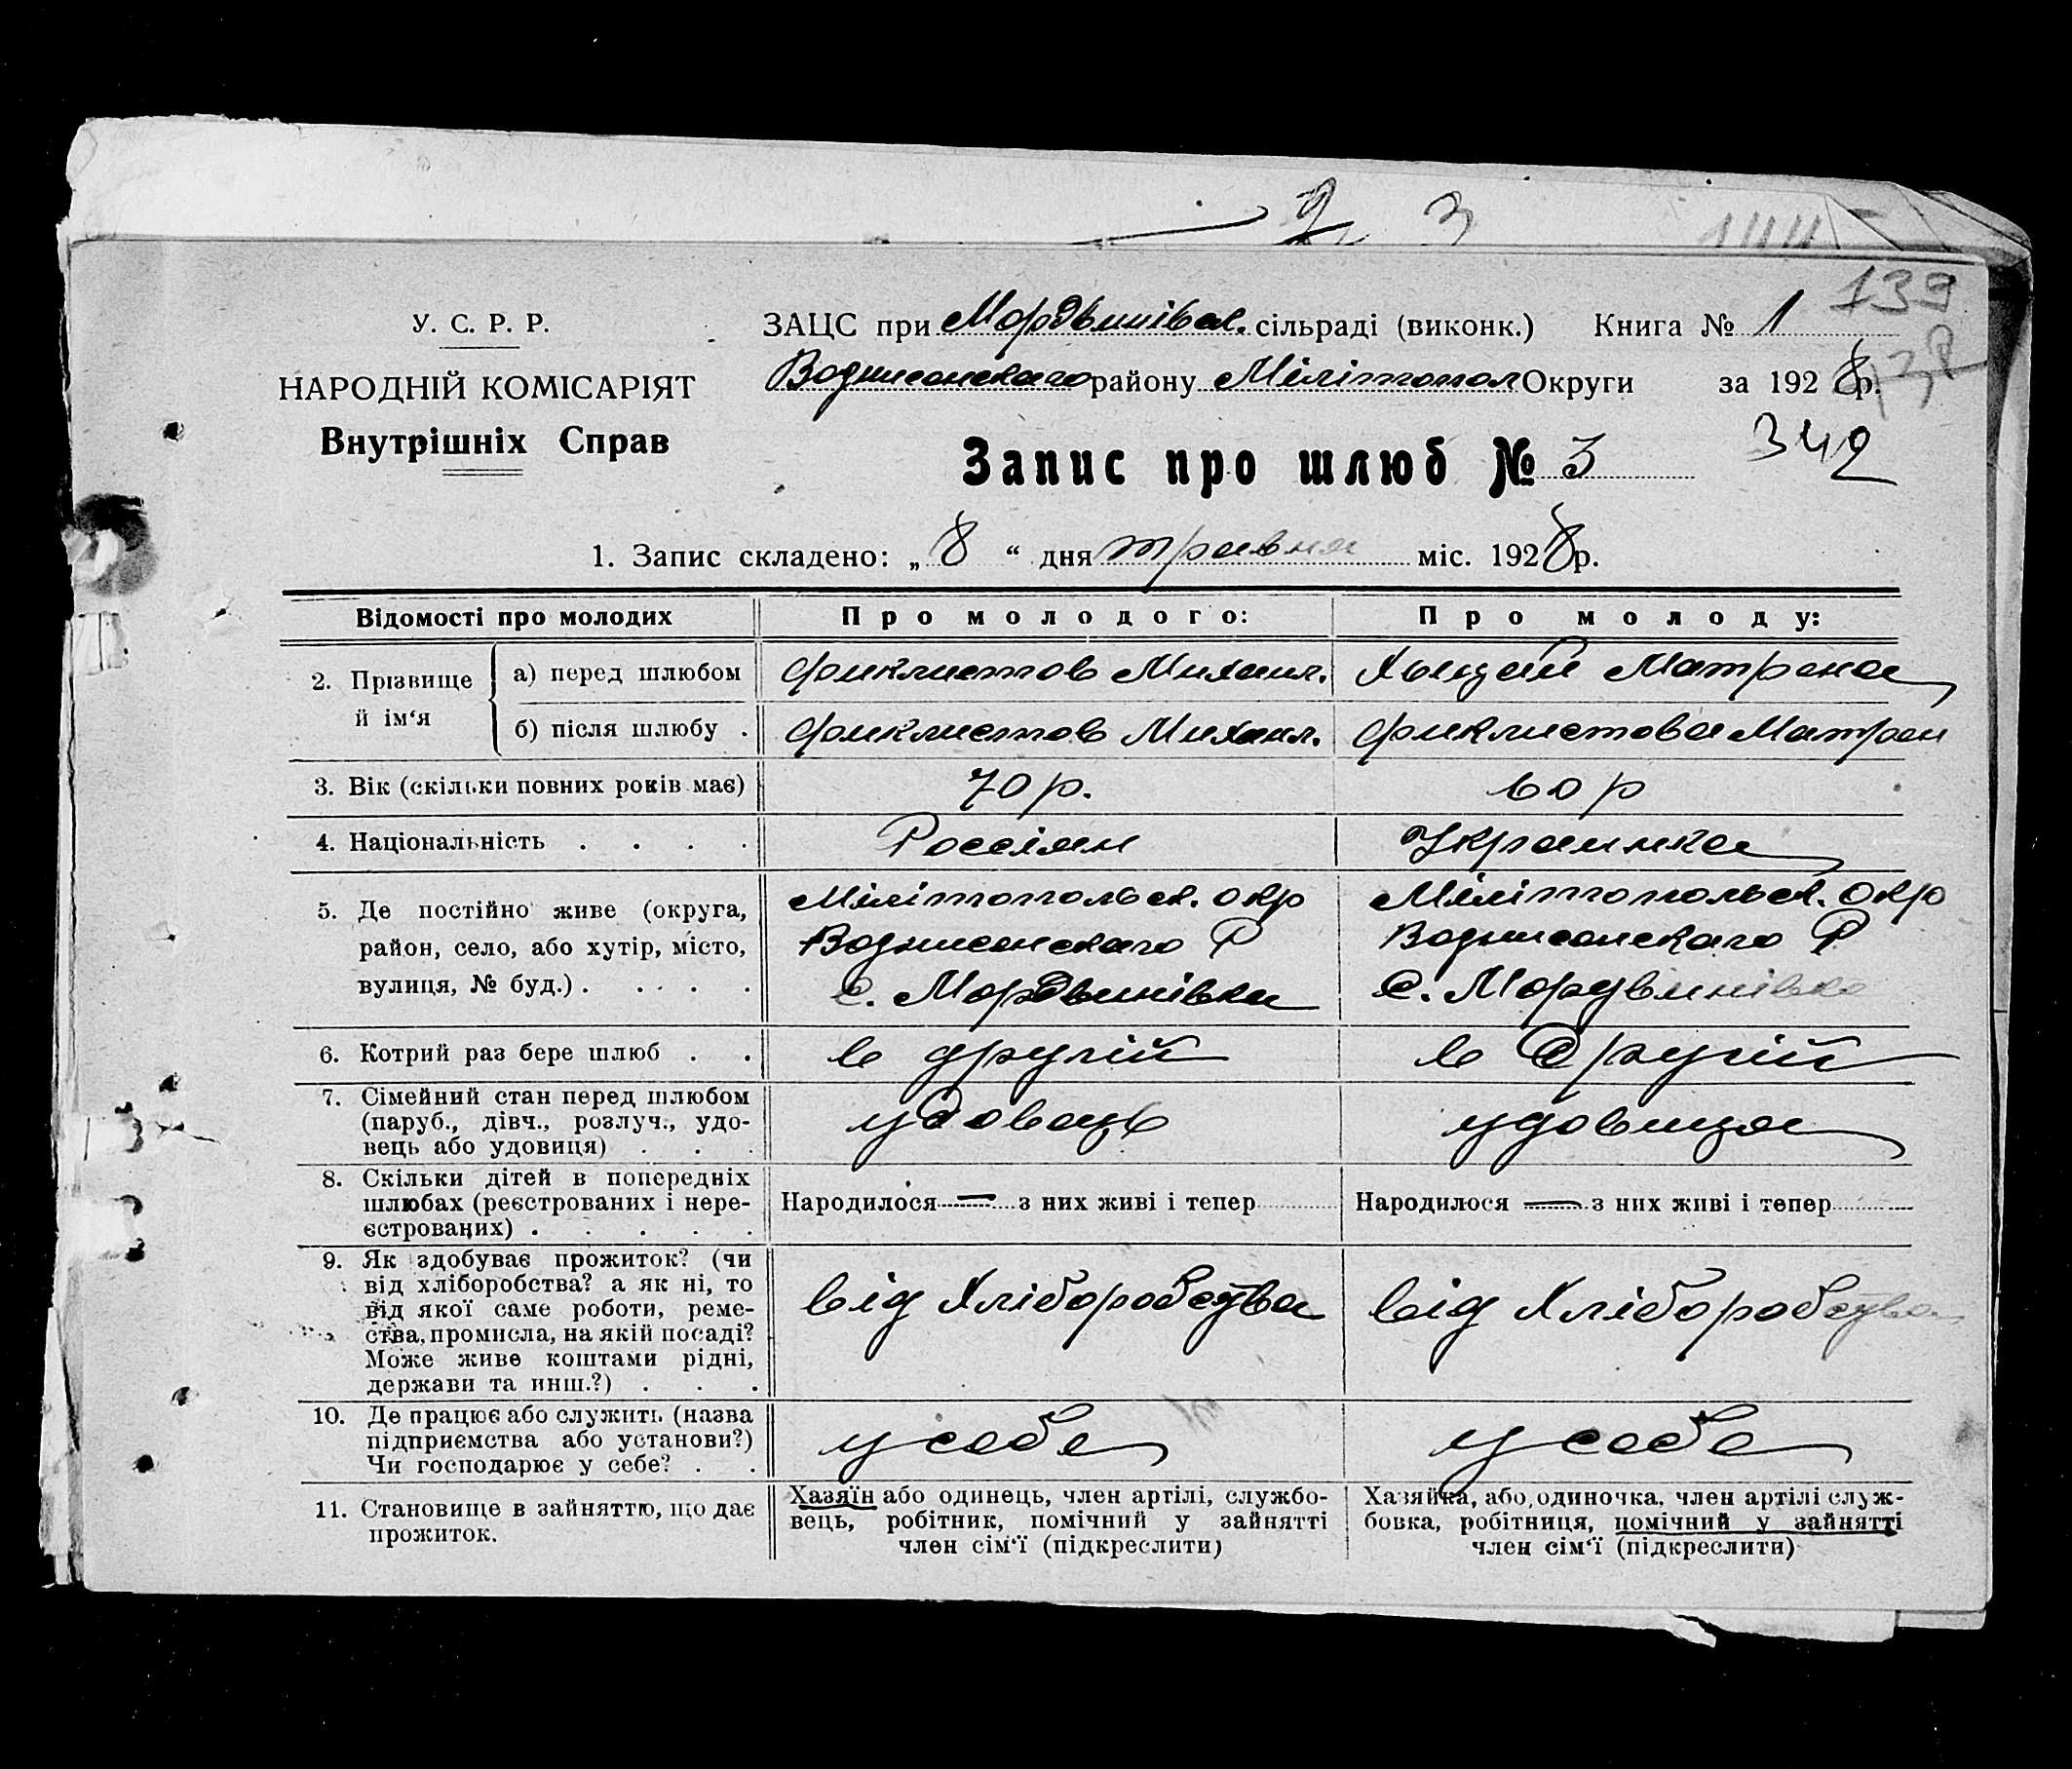 2 3
144
139
138
У. С. Р. Р.
НАРОДНІЙ КОМІСАРІЯТ
Внутрішніх Справ
ЗАЦС при Мордвинівск. сільраді (виконк.) Книга № 1
району Мілітопол Округи за 1928 р.
342
Запис про шлюб № 3
1. Запис складено: „ 8 “ дня травня міс. 1928 р.
Відомості про молодих Про молодого: Про молоду:
2. Прізвище й ім‘я
а) перед шлюбом Фиклистов Михаил. Матрена
б) після шлюбу . Фиклистов Михаил. Фиклистова Матрен
3. Вік (скільки повних років має) 70 р. 60 р
4. Національність . . . . Россіян Украинка
5. Де постійно живе (округа, район, село, або хутір, місто, вулиця, № буд.) . . . . .
Мілітопольск. окр
С. Мордвинівка
Мілітопольск. Окр
С. Мордвинівка
6. Котрий раз бере шлюб . . в другій в другій
7. Сімейний стан перед шлюбом (паруб., дівч., розлуч., удовець або удовиця) . . . удовець удовиця
8. Скільки дітей в попередніх шлюбах (реєстрованих і нереєстрованих) . . . . .
Народилося — з них живі і тепер
Народилося — з них живі і тепер
9. Як здобуває прожиток? (чи від хліборобства? а як ні, то від якої саме роботи, ремества, промисла, на якій посаді? Може живе коштами рідні, держави та инш.?) . . .
від Хліборобства
від Хліборобства
10. Де працює або служить (назва підприємства або установи?) Чи господарює у себе? . .
у себе
у себе
11. Становище в зайняттю, що дає прожиток.
Хазяїн або одинець, член артілі, службо-
вець, робітник, помічний у зайнятті
член сім‘ї (підкреслити)
Хазяйка, або, одиночка, член артілі служ-
бовка, робітниця, помічний у зайнятті
член сім‘ї (підкреслити)